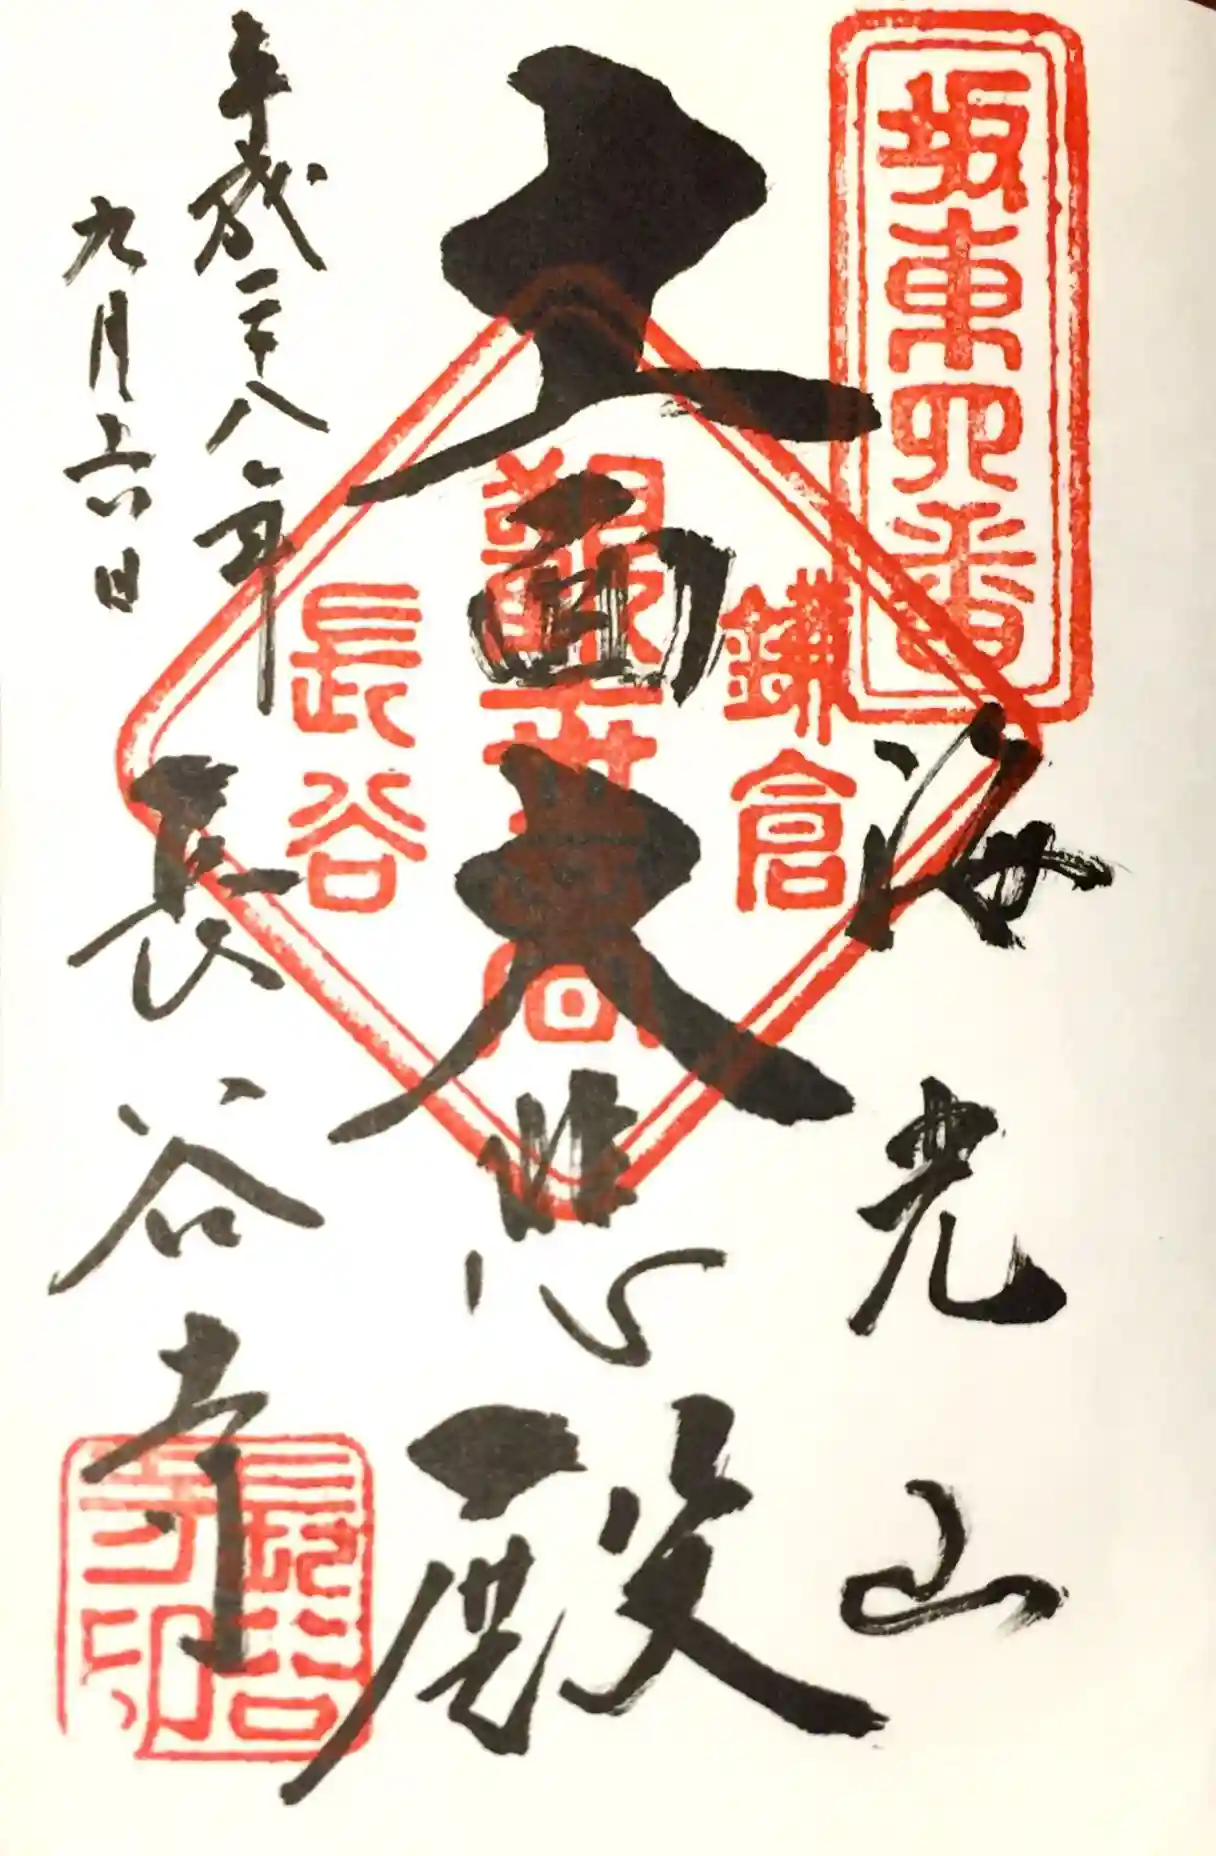 坂東四番
海光山
鎌倉
觀世音
長谷
十一面大悲殿
平成二十八年
九月六日
長谷寺
長谷寺印